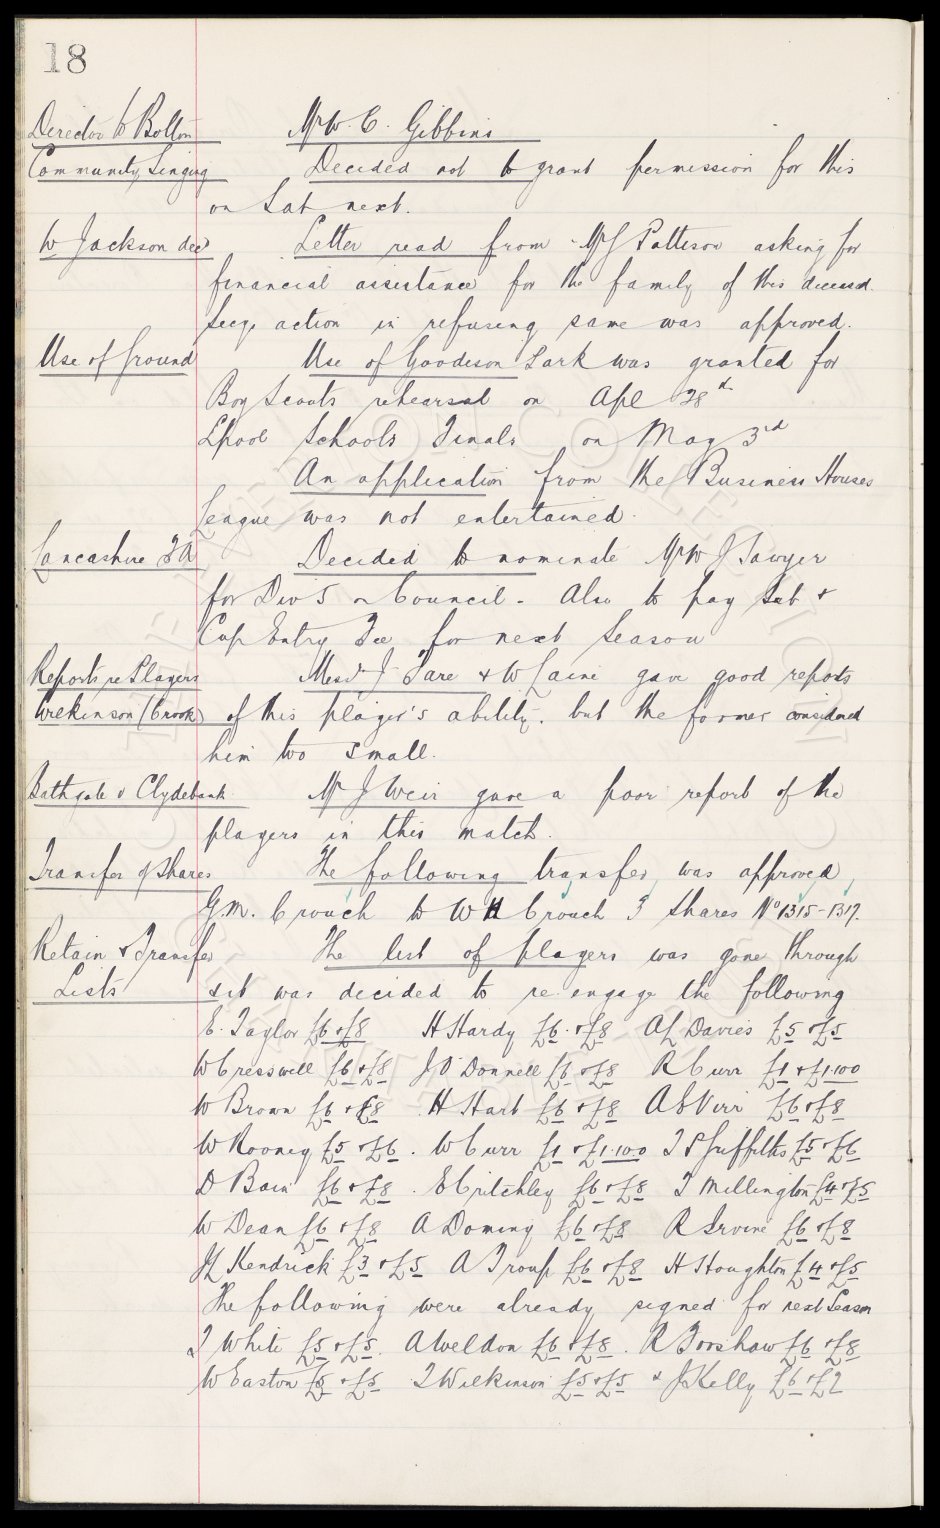 18
Director to Bolton Mr W. C. Gibbins
Community Singing Decided not to grant permission for this
on Sat next.
W Jackson decd Letter read from Mr J Pattison asking for
financial assistance for the family of this deceased.
Secys action in refusing same was approved.
Use of Ground Use of Goodison Park was granted for
Boy Scouts rehearsal on Apl 28th
Lpool Schools Finals on May 3rd
An application from the Business Houses
League was not entertained.
Lancashire FA Decided to nominate Mr W J Sawyer
for Div 5 on Council - Also to pay Sub &
Cup Entry Fee for next Season
Reports re Players Messrs J Fare & W Laine gave good reports
Wilkinson (Crook) of this player's ability, but the former considered
him too small.
Bathgate v Clydebank Mr J Weir gave a poor report of the
players in this match.
Transfer of Shares The following transfer was approved,
G.M. Crouch to W H Crouch 3 shares No 1315-1317.
Retain & Transfer The list of players was gone through
Lists & it was decided to re-engage the following
E. Taylor £6 & £8 H Hardy £6 & £8 A L Davies £5 & £5
W Cresswell £6 & £8 J O'Donnell £6 & £8 R Curr £1 & £1.10.0
W Brown £6 & £8 H Hart £6 & £8 A E Virr £6 & £8
W Rooney £5 & £6. W Curr £1 & £1.10.0 T P Griffiths £5 & £6
D Bain £6 & £8. E Critchley £6 & £8 T Millington £4 & £5
W Dean £6 & £8 A Dominy £6 & £8 R Irvine £6 & £8
J Kendrick £3 & £5 A Troup £6 & £8 H Houghton £4 & £5
The following were already signed for next Season
T White £5 & £5. A Weldon £6 & £8. R Forshaw £6 & £8
W Easton £5 & £5 T Wilkinson £5 & £5 & J Kelly £6 & £2